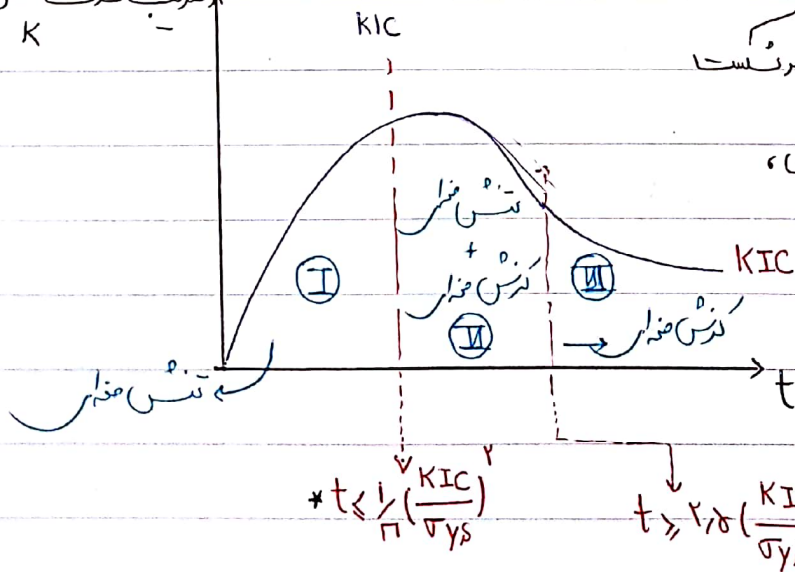 K
KIC
تنش صفحه‌ای
+
کرنش صفحه‌ای
II
I
III
KIC
→ کرنش صفحه‌ای
تنش صفحه‌ای
t
* t ≤ 1/π (KIC/σys)^۲
t ≥ ۲٫۵ (KI
σy